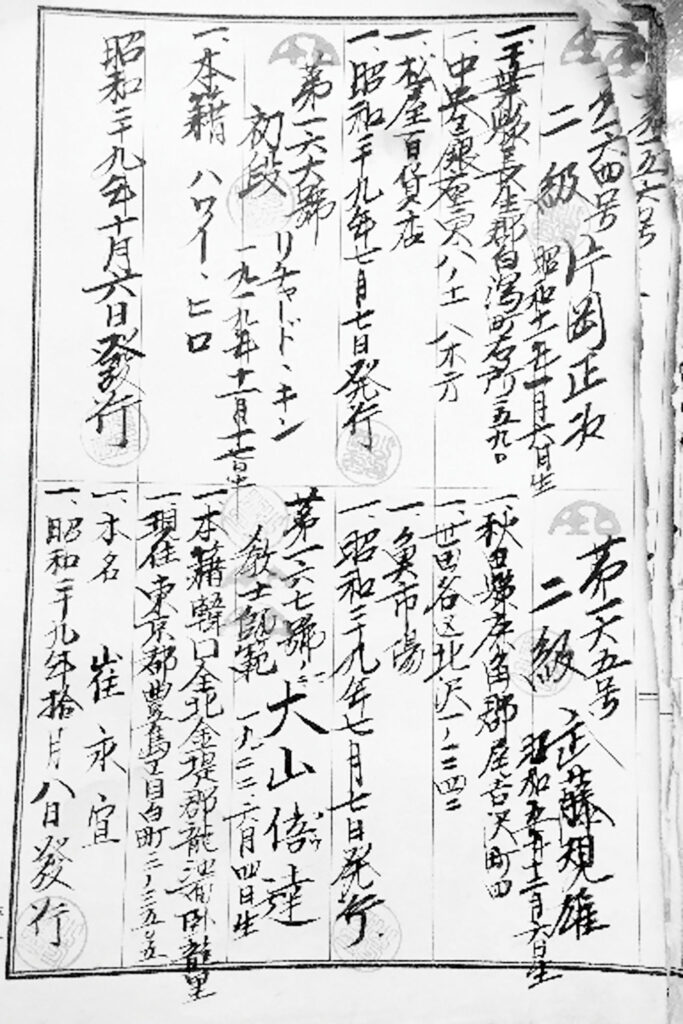 第一五六号
第一六四号 片岡正次
二級 昭和十一年一月六日生
一、千葉縣長生郡白潟町
一、中央区銀座東八ノ十一 八木方
一、松屋百貨店
一、昭和二十九年七月七日発行
第一六六號 リチャード、キン
初段 一九一九年十一月十七日生
一、本籍 ハワイ、ヒロ
昭和二十九年十月六日發行
第一六五号 藤規雄
二級 昭和五年十二月六日生
一、秋田縣鹿角郡尾去沢町
一、世田谷区北沢一ノ二四二
一、魚市場
一、昭和二十九年七月七日発行
第一六七號 大山倍達
教士師範 一九二二、六月四日生
一、本籍 韓口全北金堤郡龍池面臥龍里
一、現住 東京都豊島区目白町二ノ二五〇五
一、本名 崔永宜
一、昭和二十九年拾月八日發行